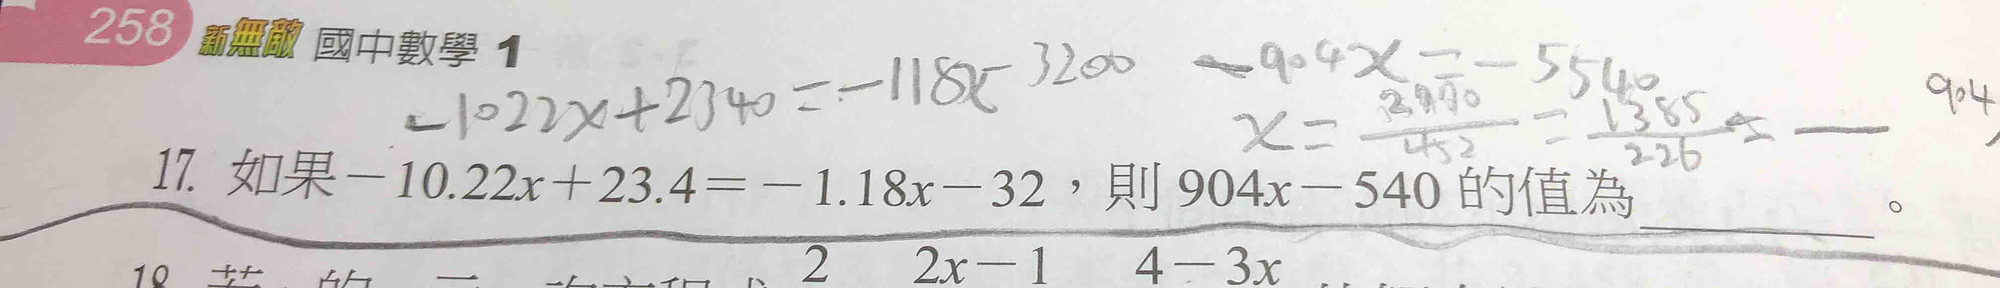 258 新無敵 國中數學 1
-1022x+2340=-118x-3200
-904x=-5540
904
x= = 1385/226 =
17. 如果-10.22x+23.4=-1.18x-32，則 904x-540 的值為________。
2 2x-1 4-3x